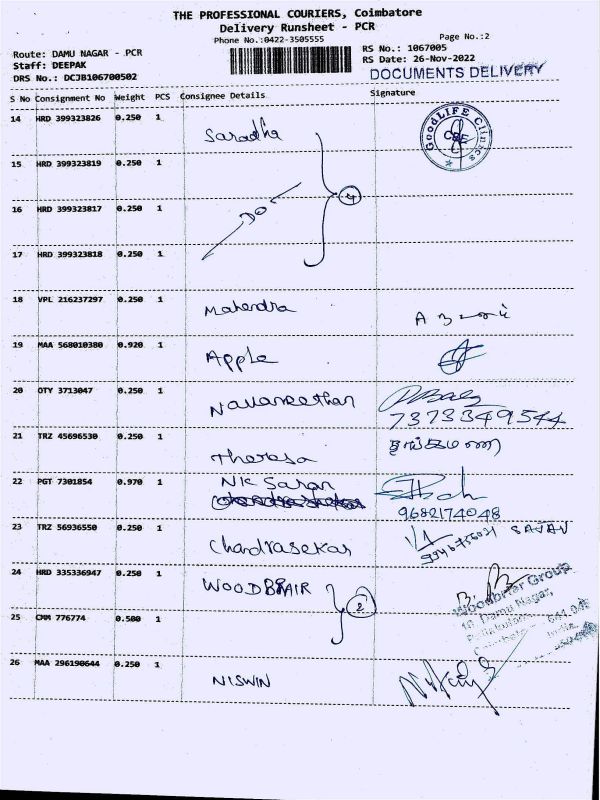 THE PROFESSIONAL COURIERS, Coimbatore
Delivery Runsheet - PCR
Phone No.:0422-3505555
Page No.:2
Route: DAMU NAGAR - PCR
Staff: DEEPAK
DRS No.: DCJB106700502
RS No.: 1067005
RS Date: 26-Nov-2022
DOCUMENTS DELIVERY
S No Consignment No Weight PCS Consignee Details Signature
14 HRD 399323826 0.250 1 Saradha
GoodLIFE Clinics CBE
15 HRD 399323819 0.250 1
16 HRD 399323817 0.250 1 DO 4
17 HRD 399323818 0.250 1
18 VPL 216237297 0.250 1 Mahendra
19 MAA 568010380 0.920 1 Apple
20 OTY 3713047 0.250 1 Navaneethan
7373349544
21 TRZ 45696530 0.250 1 Theresa
22 PGT 7301854 0.970 1 NK Saran
9682174048
23 TRZ 56936550 0.250 1 Chandrasekar
24 HRD 335336947 0.250 1 WOODBRAIR 2
Woodbriar Group
19, Damu Nagar,
25 CMM 776774 0.500 1
26 MAA 296190644 0.250 1 NISWIN